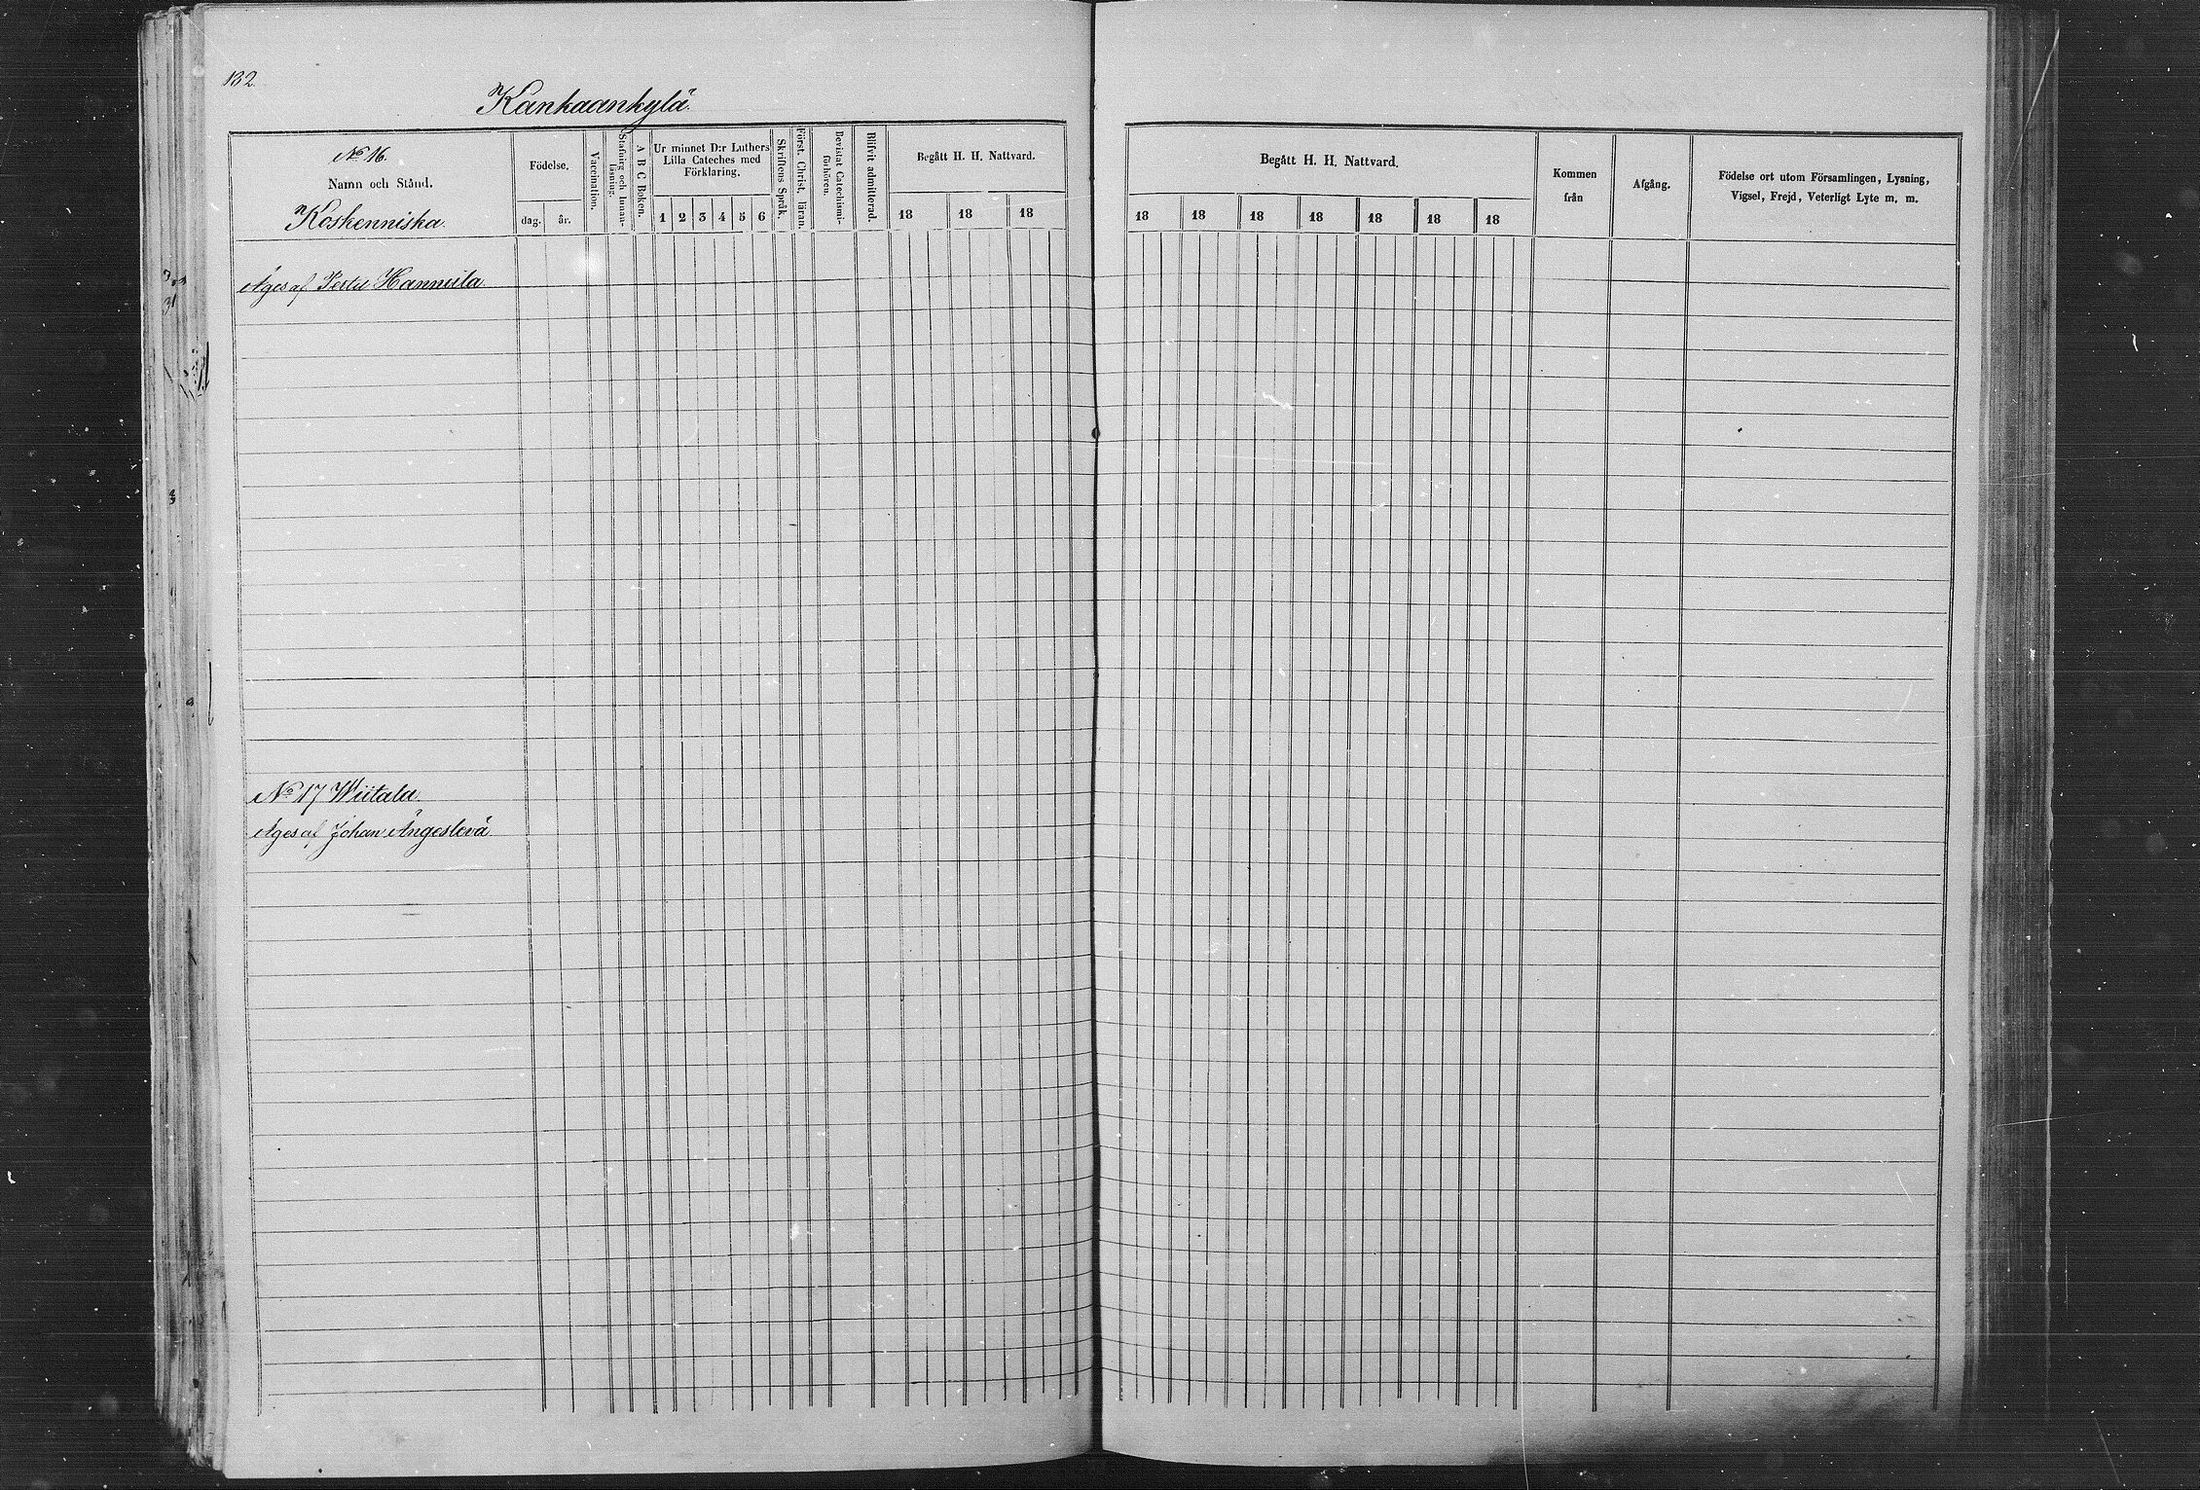 132.
Kankaankylä.
No 16.
Namn och Stånd.
Koskenniska.
Födelse.
dag. år.
Vaccination.
Stafning och Innan-läsning.
A B C Boken.
Ur minnet D:r Luthers
Lilla Cateches med
Förklaring.
1 2 3 4 5 6
Skriftens Språk.
Först. Christ. läran.
Bevistat Catechismi-förhören.
Blifvit admitterad.
Begått H. H. Nattvard.
18 18 18
Äges af Hannula
No 17 Wiitala.
Äges af Johan Ängeslevä
Begått H. H. Nattvard.
18 18 18 18 18 18 18
Kommen
från
Afgång.
Födelse ort utom Församlingen, Lysning,
Vigsel, Frejd, Veterligt Lyte m. m.